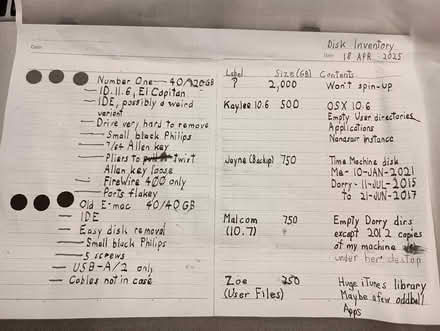 Disk Inventory
Date: 18 APR 2025
Number One — 40/120 GB
— 10.11.6, El Capitan
— IDE, possibly a weird
variant
— Drive very hard to remove
— Small black Philips
— 7/64 Allen key
— Pliers to twist
Allen key loose
— FireWire 400 only
— Ports flakey
Old E-mac 40/40 GB
— IDE
— Easy disk removal
— Small black Philips
— 5 screws
— USB-A/2 only
— Cables not in case
Label Size (GB) Contents
? 2,000 Won't spin-up
Kaylee 10.6 500 OSX 10.6
Empty User directories
Applications
Nanosaur instance
Jayne (Backup) 750 Time Machine disk
Me- 10-JAN-2021
Dorry - 11-JUL-2015
to 21-JUN-2017
Malcom 750 Empty Dorry dirs
(10.7) except 2012 copies
of my machine
under her desktop
Zoe 250 Huge iTunes library
(User Files) Maybe a few oddball
Apps